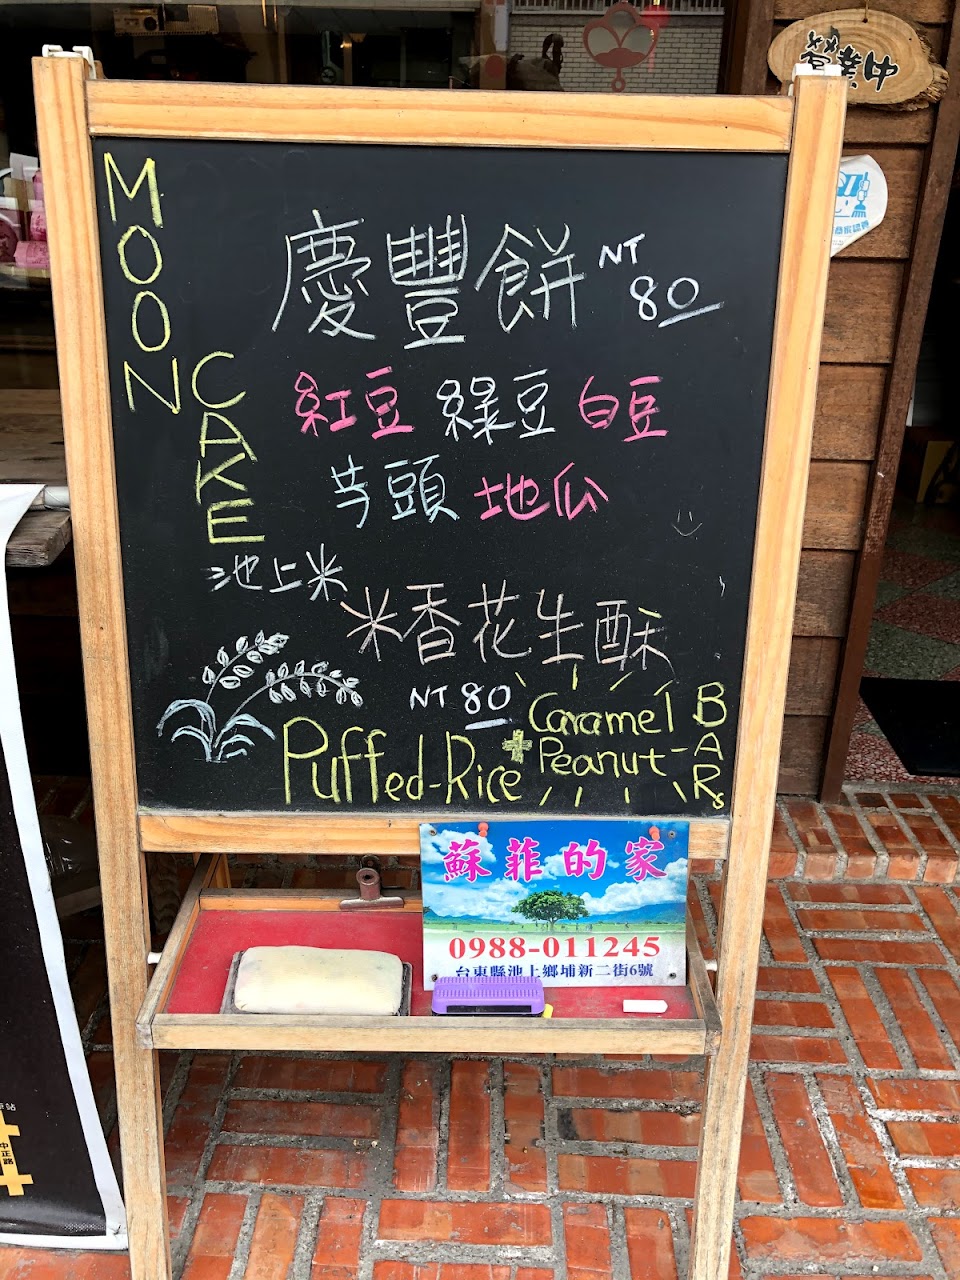 營業中
MOON
CAKE
慶豐餅 NT 80
紅豆 綠豆 白豆
芋頭 地瓜
池上米
米香花生酥
NT 80
Puffed-Rice + Caramel Peanut-BARs
蘇菲的家
0988-011245
台東縣池上鄉埔新二街6號
中正路